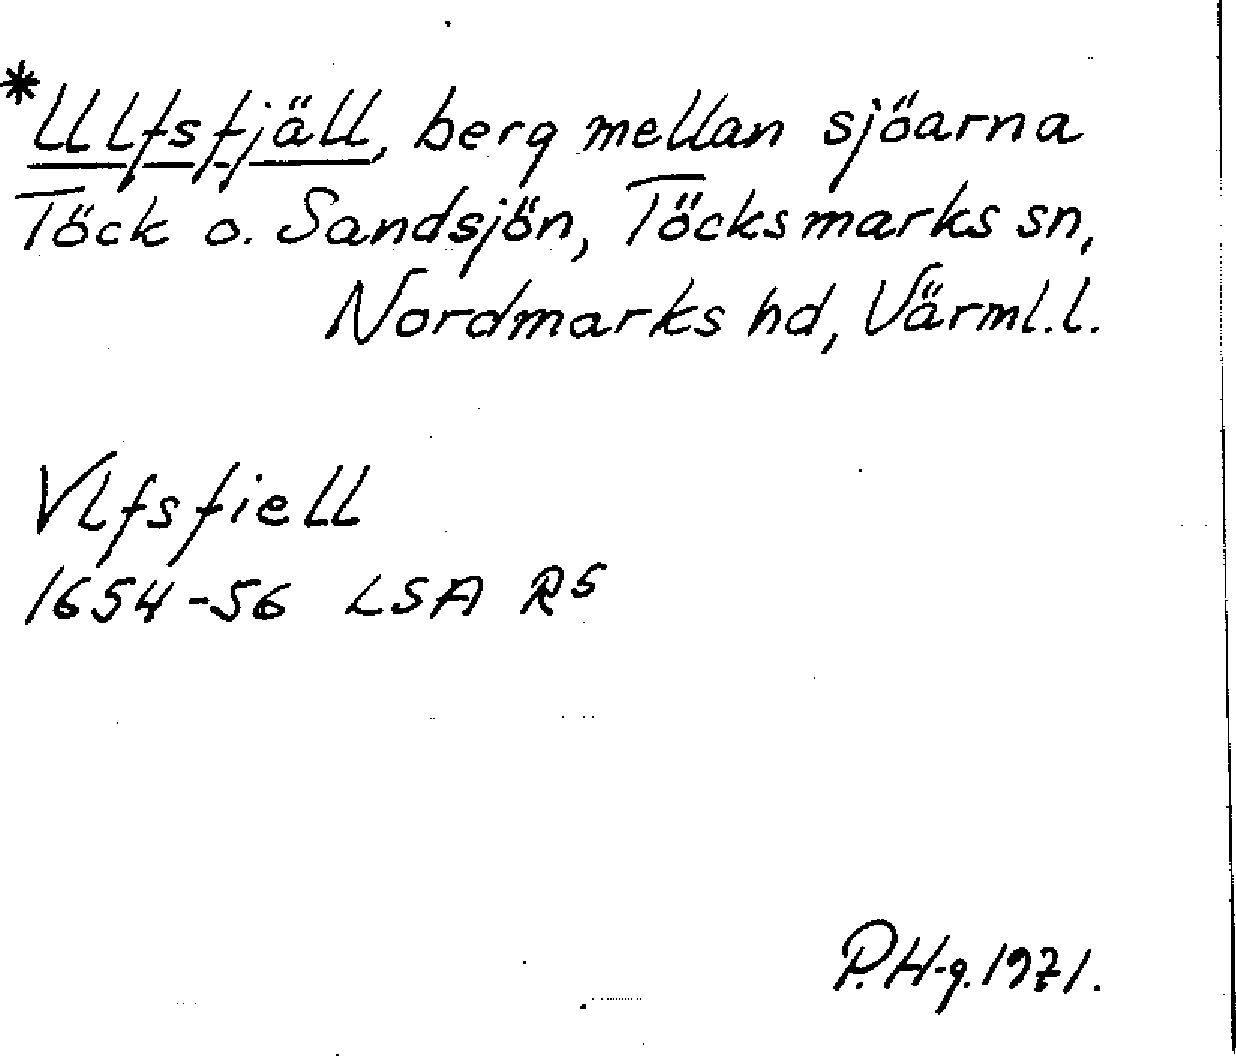 *Ulfsfjäll, berg mellan sjöarna
Töck o. Sandsjön, Töcksmarks sn,
Nordmarks hd, Värml.l.
Vlfsfiell
1654-56 LSA R5
P.H-g. 1971.